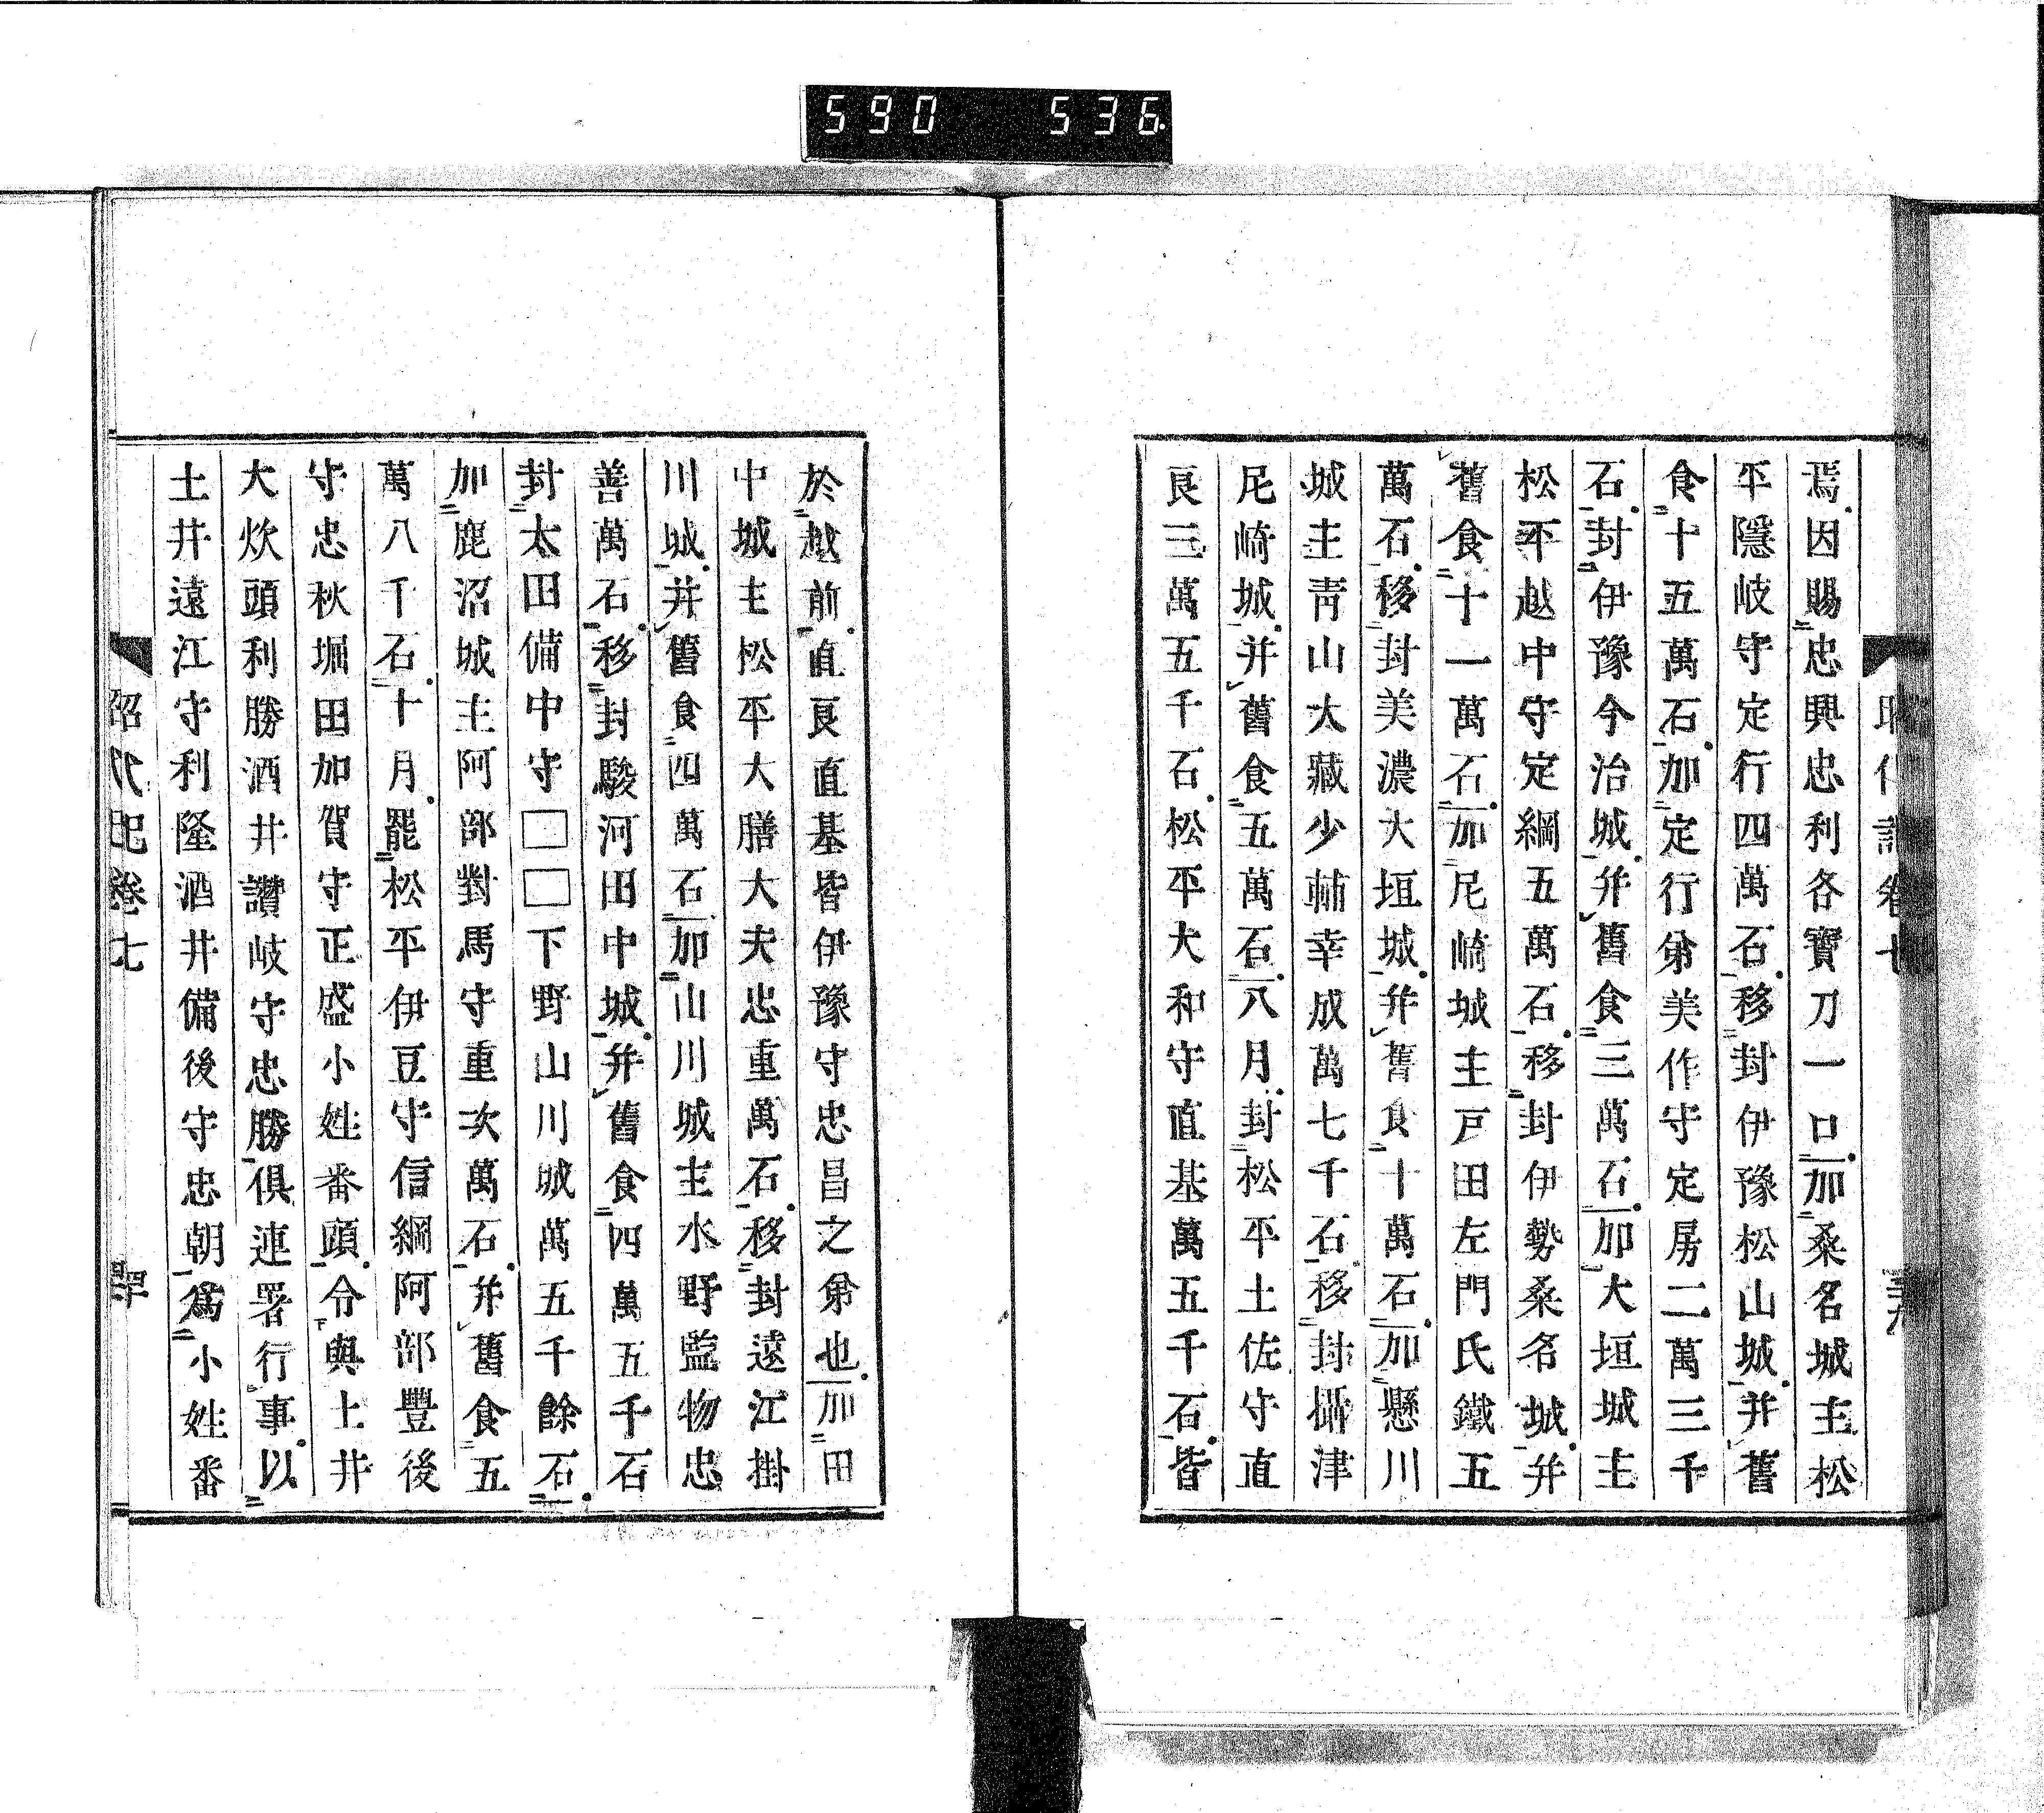 590 536
焉因賜忠興忠利各寶刀一口加桑名城主松
平隱岐守定行四萬石移封伊豫松山城并舊
食十五萬石加定行弟美作守定房二萬三千
石封伊豫今治城并舊食三萬石加大垣城主
松平越中守定綱五萬石移封伊勢桑名城并
舊食十一萬石加尼崎城主戸田左門氏鐵五
萬石移封美濃大垣城并舊食十萬石加懸川
城主靑山大藏少輔幸成萬七千石移封攝津
尼崎城并舊食五萬石八月封松平土佐守直
良三萬五千石松平大和守直基萬五千石皆
於越前直良直基皆伊豫守忠昌之弟也加田
中城主松平大膳大夫忠重萬石移封遠江掛
川城并舊食四萬石加山川城主水野監物忠
善萬石移封駿河田中城并舊食四萬五千石
封太田備中守□□下野山川城萬五千餘石
加鹿沼城主阿部對馬守重次萬石并舊食五
萬八千石十月罷松平伊豆守信綱阿部豐後
守忠秋堀田加賀守正盛小姓番頭令與土井
大炊頭利勝酒井讚岐守忠勝俱連署行事以
土井遠江守利隆酒井備後守忠朝爲小姓番
昭代記卷七